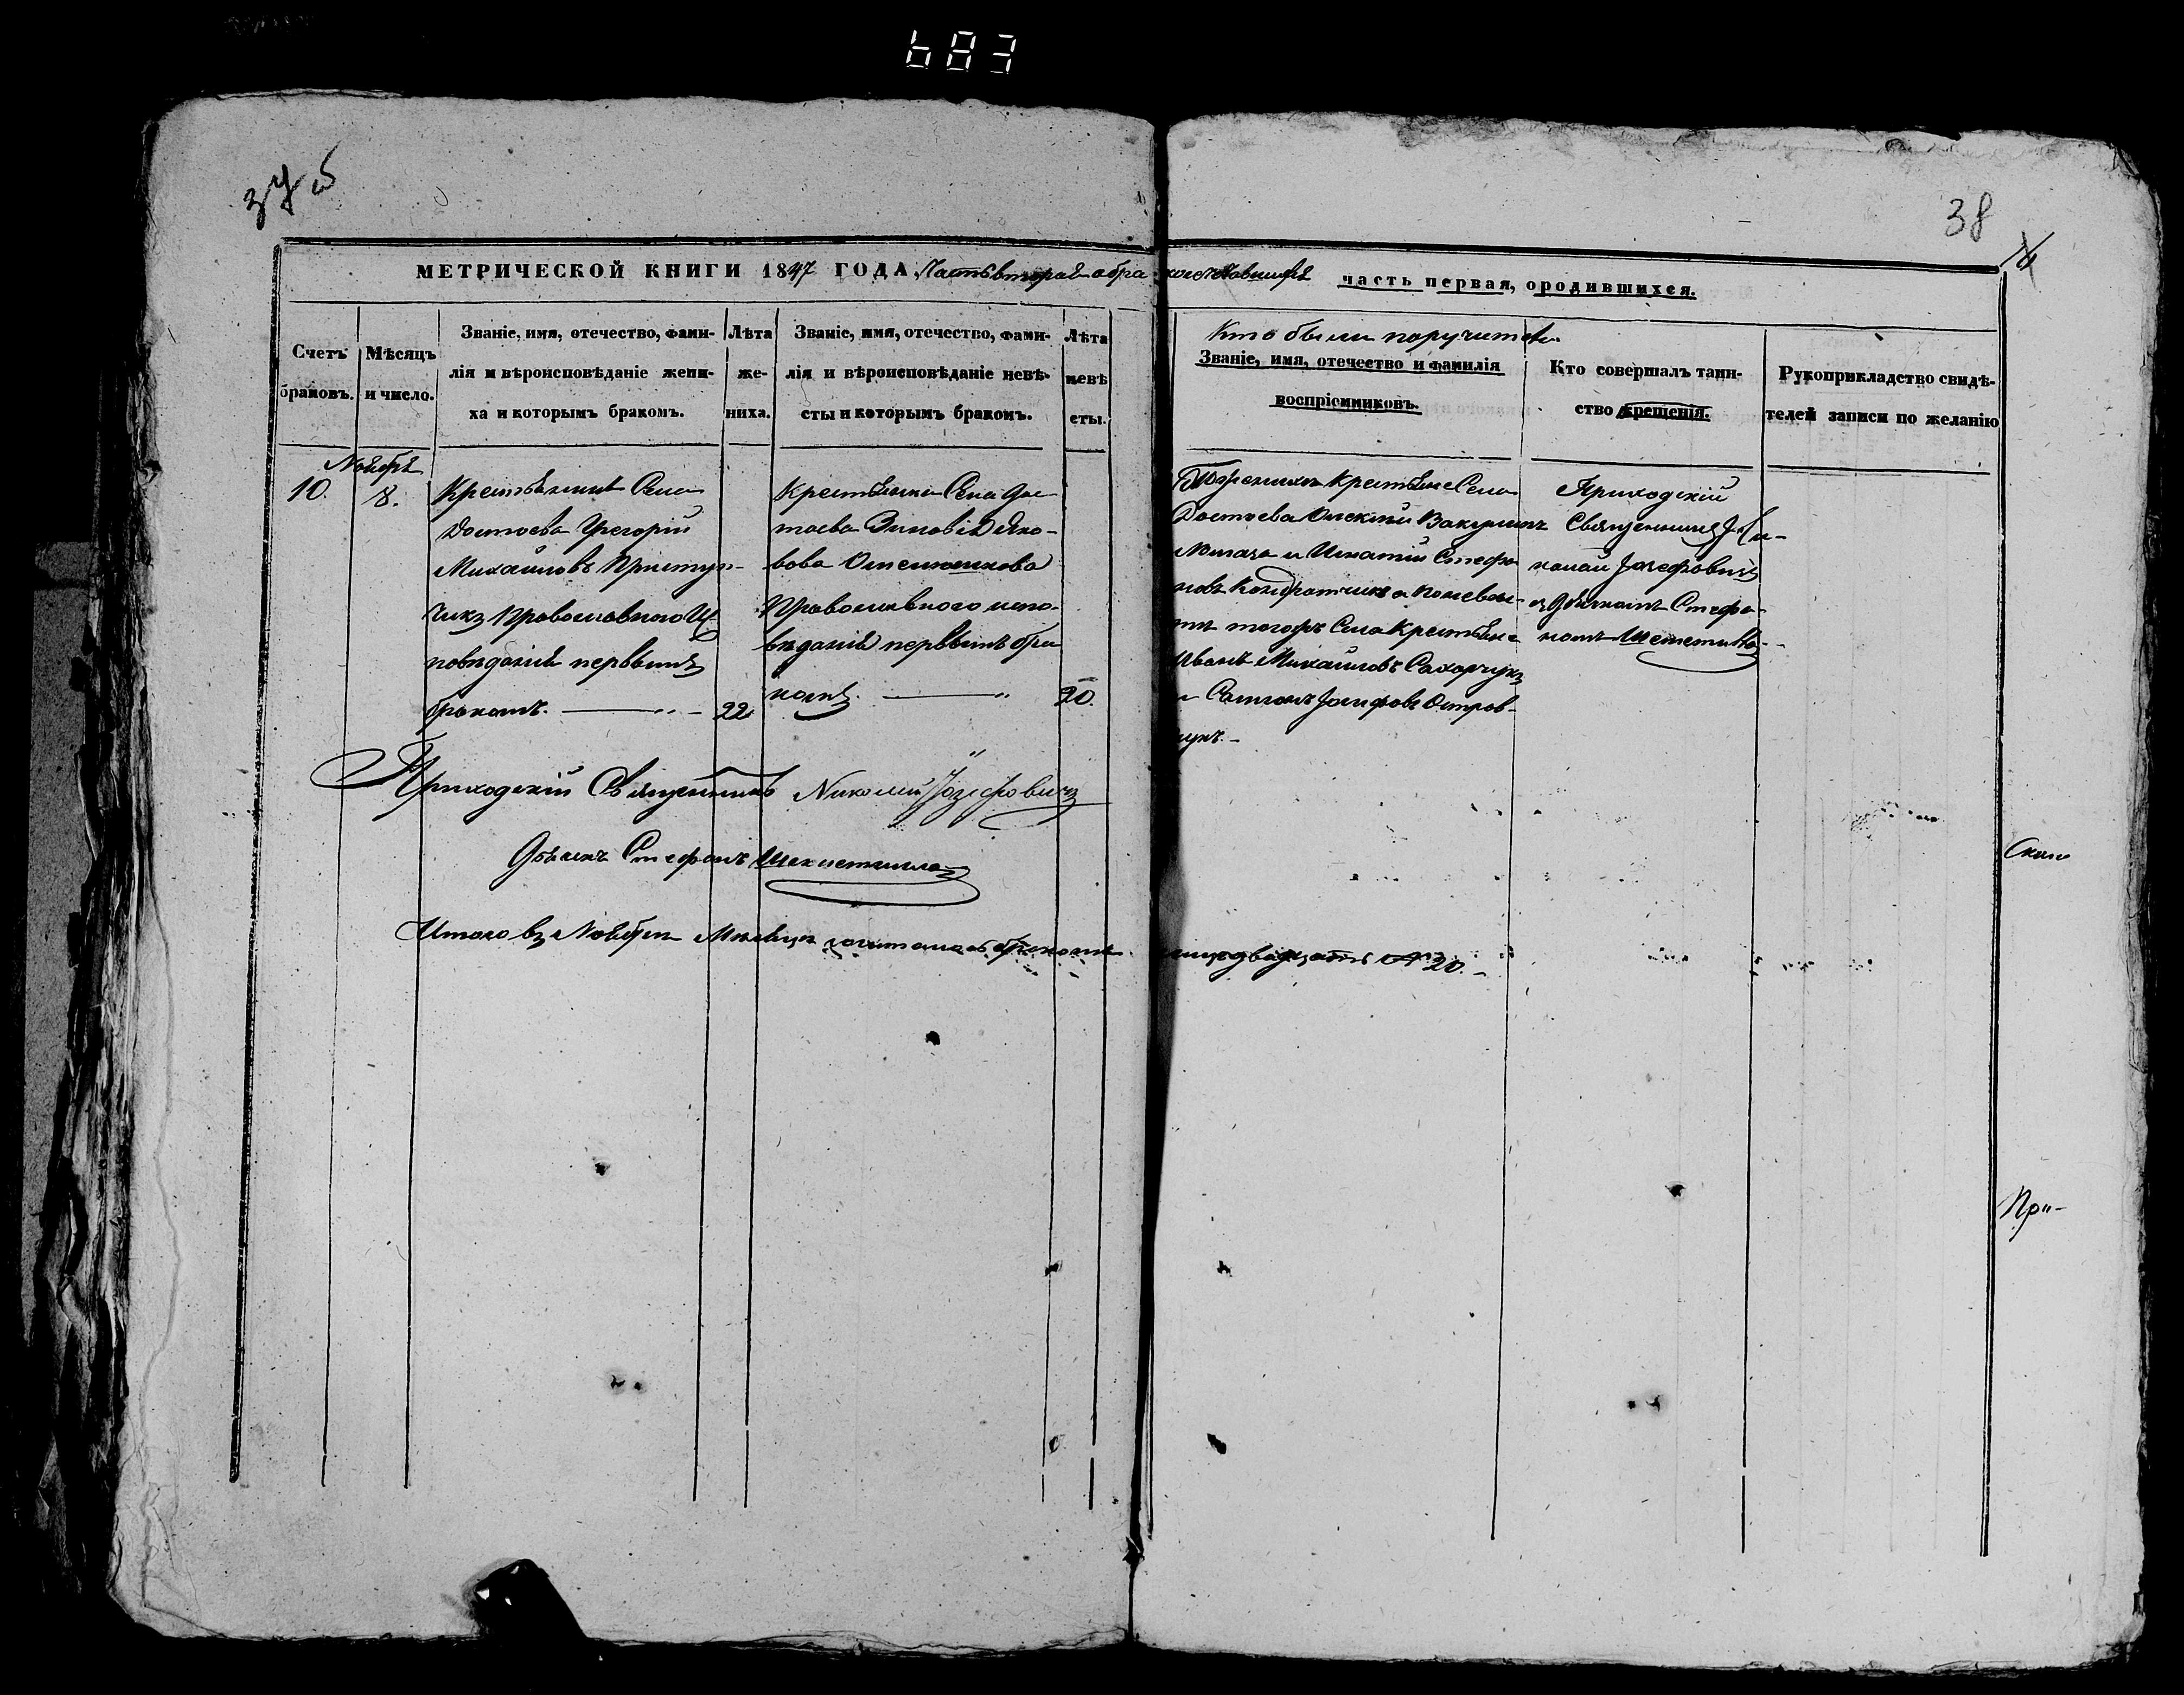 683
37 б
38
МЕТРИЧЕСКОЙ КНИГИ 1847 ГОДА Часть вторая о бракосочетавшихся
часть первая, ородившихся.
Счетъ браковъ.
Мѣсяцъ и число.
Званіе, имя, отечество, фами-
лія и вѣроисповѣданіе жени-
ха и которымъ бракомъ.
Лѣта
же-
ниха.
Званіе, имя, отечество, фами-
лія и вѣроисповѣданіе невѣ-
сты и которымъ бракомъ.
Лѣта
невѣ
сты.
Кто были поручители
Званіе, имя, отечество и фамилія
воспріемниковъ.
Кто совершалъ таин-
ство крещенія.
Рукоприкладство свидѣ-
телей записи по желанію
Ноября
10.
8.
Крестьянинъ Села
Достоева Григорій
Михайловъ Приступ-
чикъ Православного Ис
повѣданія первымъ
бракомъ.
22
Крестьянка Села Дос
тоева Зиновія Яко-
вова
Православного испо-
вѣданія первымъ бра
комъ.
20.
По женихѣ Крестьяне Села
Достоева Алексій
и Игнатій Стефа
новъ Кондратчикъ а по невѣс-
тѣ тогожъ Села Крестьяне
Иванъ Михайловъ Сахарчукъ
и Самуилъ Іосифовъ Остров-
чукъ.
Приходскій
Священникъ Ни-
колай Іозефовичъ
съ Дьячкомъ Стефа-
номъ
Приходскій Священникъ Николай Іозефовичъ
Дьячекъ Стефанъ
Итого въ Ноябрѣ Мѣсяцѣ сочиталось бракомъ лицъ двадцать № 20.
Скон
При-